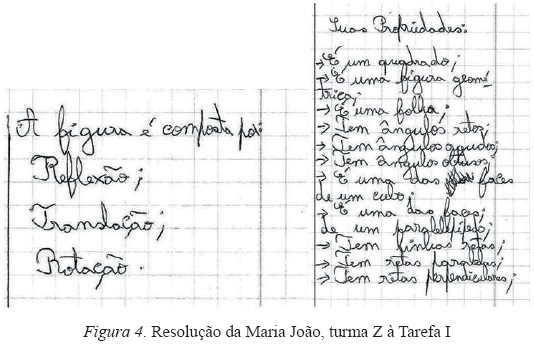 A figura é composta por:
Reflexão;
Translação;
Rotação.
Suas Propriedades:
→ É um quadrado;
→ É uma figura geomé-
trica;
→ É uma folha;
→ Tem ângulos retos;
→ Tem ângulos agudos;
→ Tem ângulos obtusos;
→ É uma das faces
de um cubo;
→ É uma das faces
de um paralelepípedo;
→ Tem linhas retas;
→ Tem retas paralelas;
→ Tem retas perpendiculares;
Figura 4. Resolução da Maria João, turma Z à Tarefa I